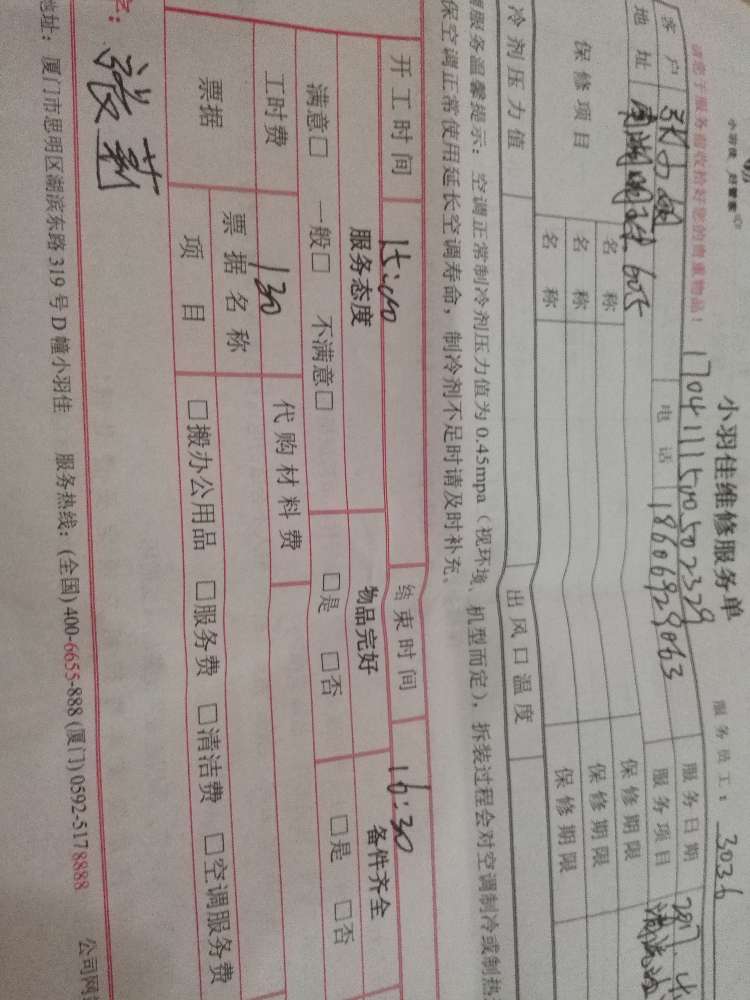 小羽佳维修服务单
服务员工：3036
请您于服务前收拾好您的贵重物品！
1704111500502329
客户
电话 18606929063
服务日期 2017.4
地址 605
服务项目 清洗
保修项目 名称 保修期限
名称 保修期限
名称 保修期限
冷剂压力值 出风口温度
服务温馨提示：空调正常制冷剂压力值为0.45mpa（视环境、机型而定），拆装过程会对空调制冷或制热
保空调正常使用延长空调寿命，制冷剂不足时请及时补充。
开工时间 15:00 结束时间 16:30
服务态度 物品完好 备件齐全
满意□ 一般□ 不满意□ □是 □否 □是 □否
工时费 130 代购材料费
票据 票据名称
项目 □搬办公用品 □服务费 □清洁费 □空调服务费
张莉
地址：厦门市思明区湖滨东路319号D幢小羽佳 服务热线：(全国)400-6655-888 (厦门)0592-5178888 公司网